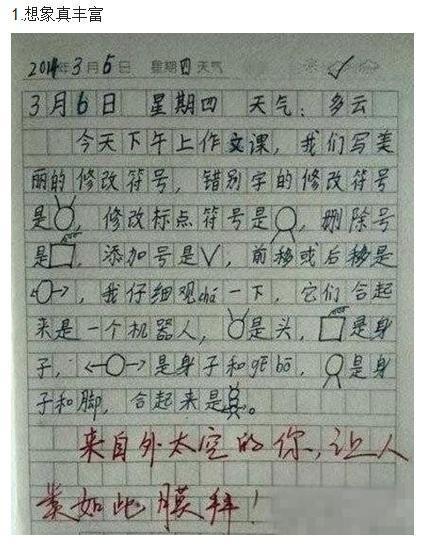 1.想象真丰富
2014年3月6日 星期四天气
3月6日 星期四 天气：多云
今天下午上作文课，我们写美
丽的修改符号，错别字的修改符号
是，修改标点符号是，删除号
是，添加号是∨，前移或后移是
，我仔细观chá一下，它们合起
来是一个机器人，是头，是身
子，是身子和gē bō，是身
子和脚，合起来是。
来自外太空的你，让人
类如此膜拜！